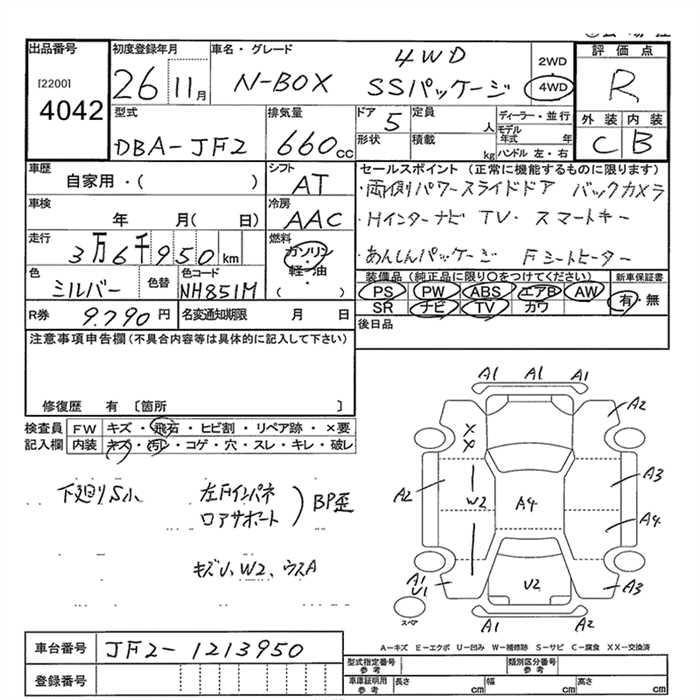 出品番号 初度登録年月 車名・グレード 4WD 2WD 評価点
[2200] 4042 26 11月 N-BOX SSパッケージ 4WD R
型式 排気量 ドア 定員 ディーラー・並行 外装 内装
DBA-JF2 660cc 5 人 モデル年式 年 C B
形状 積載 kg ハンドル 左・右
車歴 シフト セールスポイント(正常に機能するものに限ります)
自家用・( ) AT ・両側パワースライドドア バックカメラ
車検 冷房 ・Hインターナビ TV・スマートキー
年 月( 日) AAC
走行 燃料 ・あんしんパッケージ Fシートヒーター
3万6千950km ガソリン・軽油・( )
色 色替 色コード 装備品(純正品に限り○をつけてください) 新車保証書
ミルバー NH851M PS PW ABS エアB AW 有・無
SR ナビ TV カワ
R券 9.790円 名変通知期限 月 日 後日品
注意事項申告欄(不具合内容等は具体的に記入して下さい)
修復歴 有 〔箇所 〕
検査員 FW キズ・飛石・ヒビ割・リペア跡・×要
記入欄 内装 キズ・汚レ・コゲ・穴・スレ・キレ・破レ
下廻りS小 左Fインパネ ロアサポート BP歪
キズU、W2、ウスA
A1 A1 A1
A2
X
X
A2 W2 A4 A3
A4
A1
U1 U2 A3
A2 A2
スペア
A-キズ E-エクボ U-凹み W-補修跡 S-サビ C-腐食 XX-交換済
車台番号 JF2-1213950
登録番号
型式指定番号 参考 類別区分番号 参考
車庫証明用 参考 長さ cm 幅 cm 高さ cm